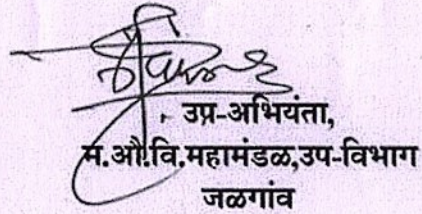 उप-अभियंता,
म.औ.वि.महामंडळ,उप-विभाग
जळगांव